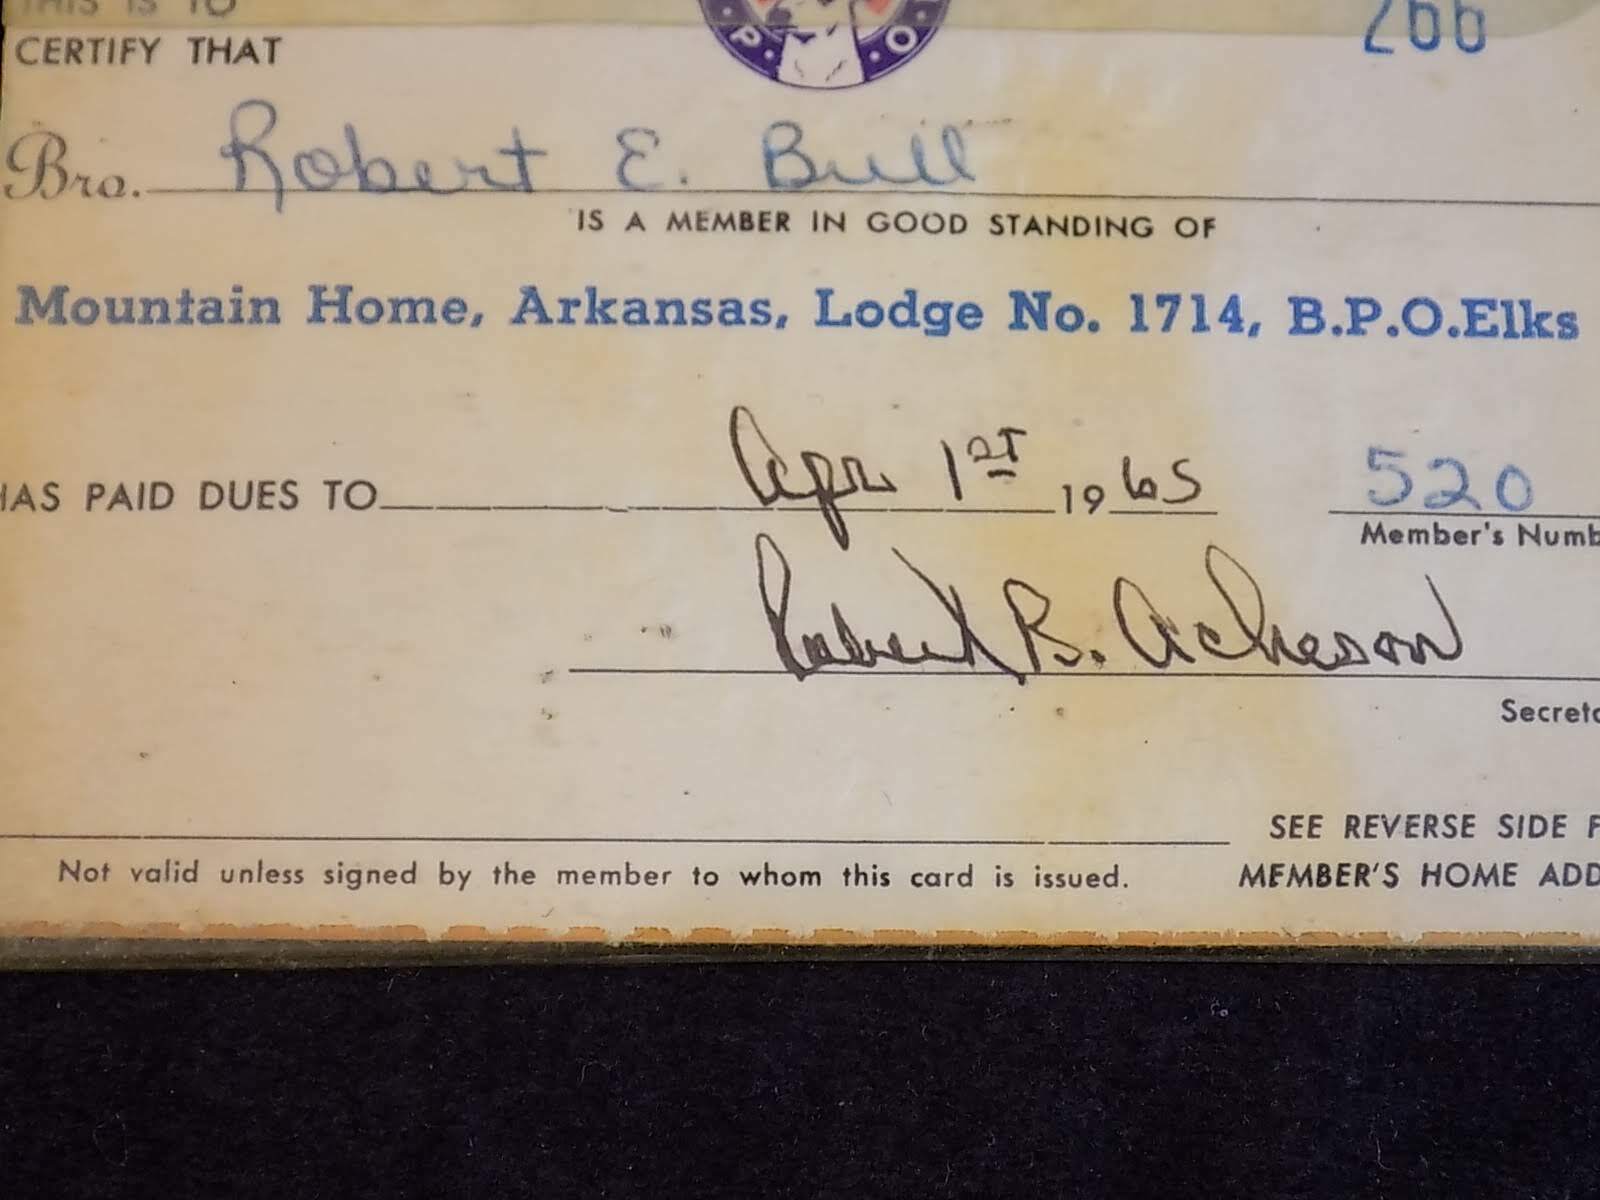 THIS IS TO
266
P. O
CERTIFY THAT
Bro. Robert E. Bull
IS A MEMBER IN GOOD STANDING OF
Mountain Home, Arkansas, Lodge No. 1714, B.P.O.Elks
HAS PAID DUES TO Apr 1ST 1965 520
Member's Numb
Robert B. Acheson
Secreta
SEE REVERSE SIDE F
Not valid unless signed by the member to whom this card is issued. MEMBER'S HOME ADD